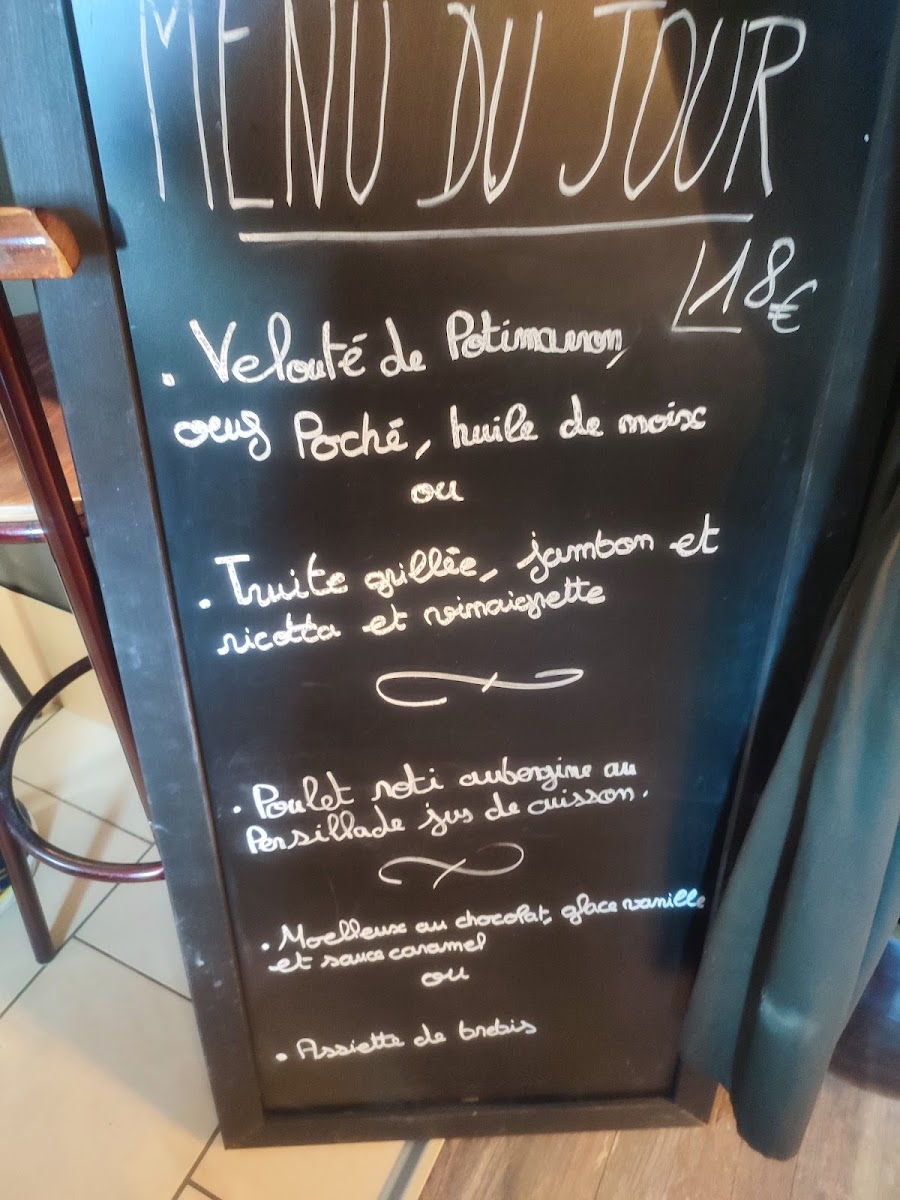 MENU DU JOUR
18€
. Velouté de Potimarron,
oeuf Poché, huile de noix
ou
. Truite grillée, jambon et
ricotta et vinaigrette
. Poulet roti aubergine au
Persillade jus de cuisson.
. Moelleux au chocolat, glace vanille
et sauce caramel
ou
. Assiette de brebis